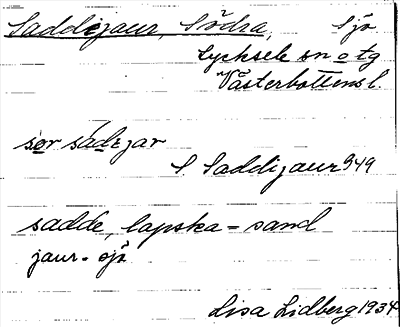 Saddijaur, Södra, Sjö
Lycksele sn o tg
Västerbottens l.
sør sadejar
S Saddijaur 949
sadde, lapska = sand
jaur = sjö
Lisa Lidberg 1934